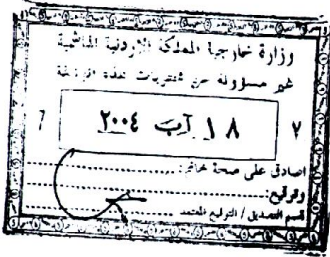 وزارة خارجية المملكة الأردنية الهاشمية
غير مسؤولة عن محتويات هذه الوثيقة
7 ١٨ آب ٢٠٠٤ ٧
اصادق على صحة خاتم:
وتوقيع:
قسم التصديق / التوقيع المعتمد